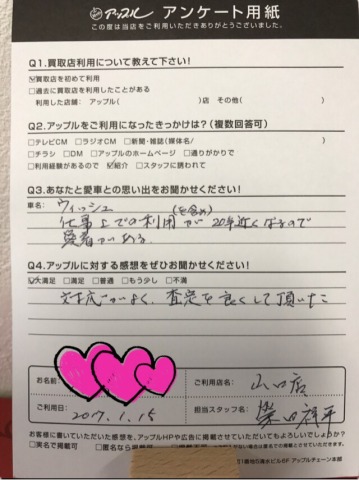 アップル アンケート用紙
この度は当店をご利用いただきありがとうございました。
Q1.買取店利用について教えて下さい!
☑買取店を初めて利用
□過去に買取店を利用したことがある
利用した店舗: アップル( )店 その他( )
Q2.アップルをご利用になったきっかけは?(複数回答可)
□テレビCM □ラジオCM □新聞・雑誌(媒体名/ )
□チラシ □DM □アップルのホームページ □通りがかりで
□利用経験があるので ☑紹介 □スタッフに誘われて
Q3.あなたと愛車との思い出をお聞かせください!
車名: ウィッシュ
仕事上での利用(を含め)が20年近くなるので
愛着がある。
Q4.アップルに対する感想をぜひお聞かせください!
☑大満足 □満足 □普通 □もう少し □不満
対応がよく、査定を良くして頂いた
お名前
ご利用店名: 山口店
ご利用日: 2017.1.15
担当スタッフ名: 柴田 祥平
お客様に書いていただいた感想を、アップルHPや広告に掲載させていただいてもよろしいでしょうか?
□実名で掲載可 □匿名なら掲載可
アップルチェーン本部